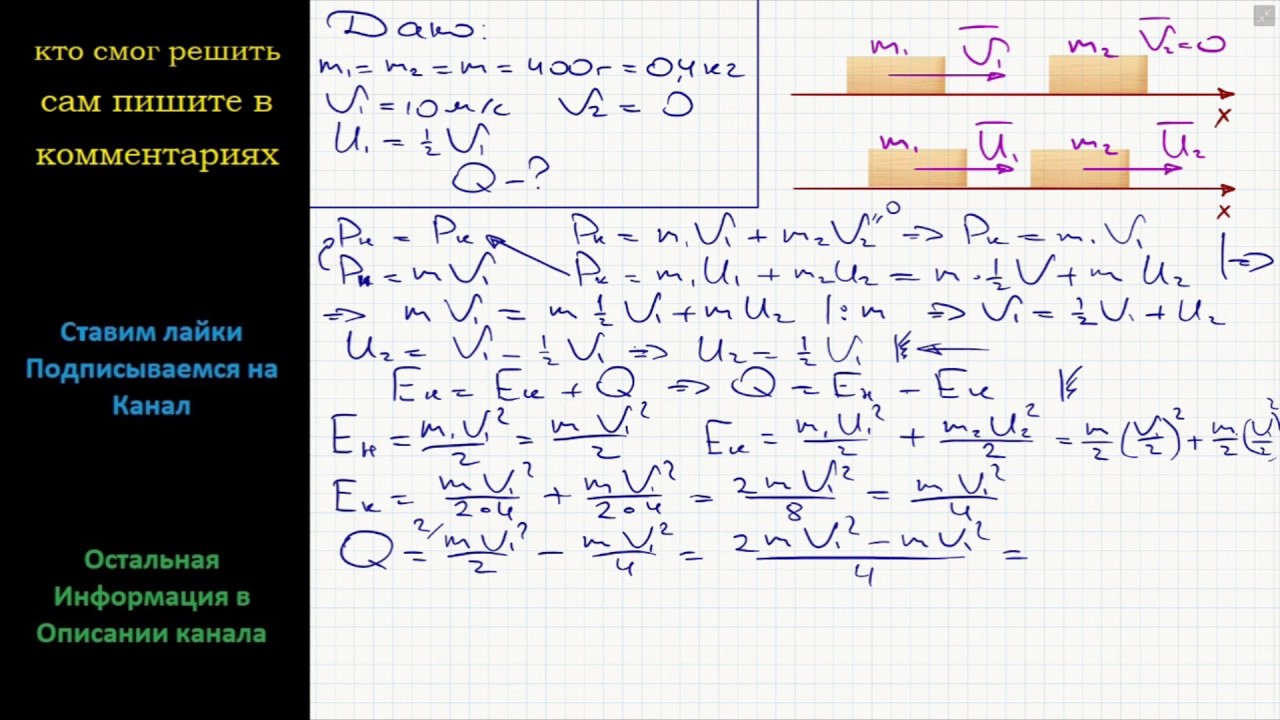 кто смог решить
сам пишите в
комментариях
Ставим лайки
Подписываемся на
Канал
Остальная
Информация в
Описании канала
Дано:
m₁ = m₂ = m = 400г = 0,4кг
V₁ = 10м/с V₂ = 0
U₁ = ½ V₁
Q – ?
m₁ V̅₁ m₂ V̅₂=0
x
m₁ U̅₁ m₂ U̅₂
x
Pн = Pк Pн = m₁V₁ + m₂V₂"⁰ => Pн = m₁V₁
Pн = mV₁ Pк = m₁U₁ + m₂U₂ = m·½V + mU₂ | =>
=> mV₁ = m½V₁ + mU₂ |:m => V₁ = ½V₁ + U₂
U₂ = V₁ – ½V₁ => U₂ = ½V₁
Eн = Eк + Q => Q = Eн – Eк
Eн = m₁V₁²/2 = mV₁²/2 Eк = m₁U₁²/2 + m₂U₂²/2 = m/2 (V/2)² + m/2 (V/2)²
Eк = mV₁²/2·4 + mV₁²/2·4 = 2mV₁²/8 = mV₁²/4
Q = ²/mV₁²/2 – mV₁²/4 = 2mV₁² – mV₁²/4 =